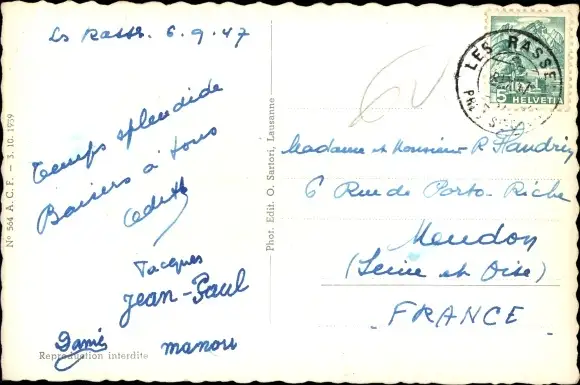 Les Rasses. 6.9.47
Temps splendide
Baisers à tous
Odette
Jacques
Jean-Paul
manou
Reproduction interdite
Nº 564 A. C. F. - 3. 10. 1939
Phot. Edit. O. Sartori, Lausanne
LES RASSE
5 HELVETIA
Madame et Monsieur R
6 Rue de Porto-Riche
Meudon
(Seine et Oise)
FRANCE